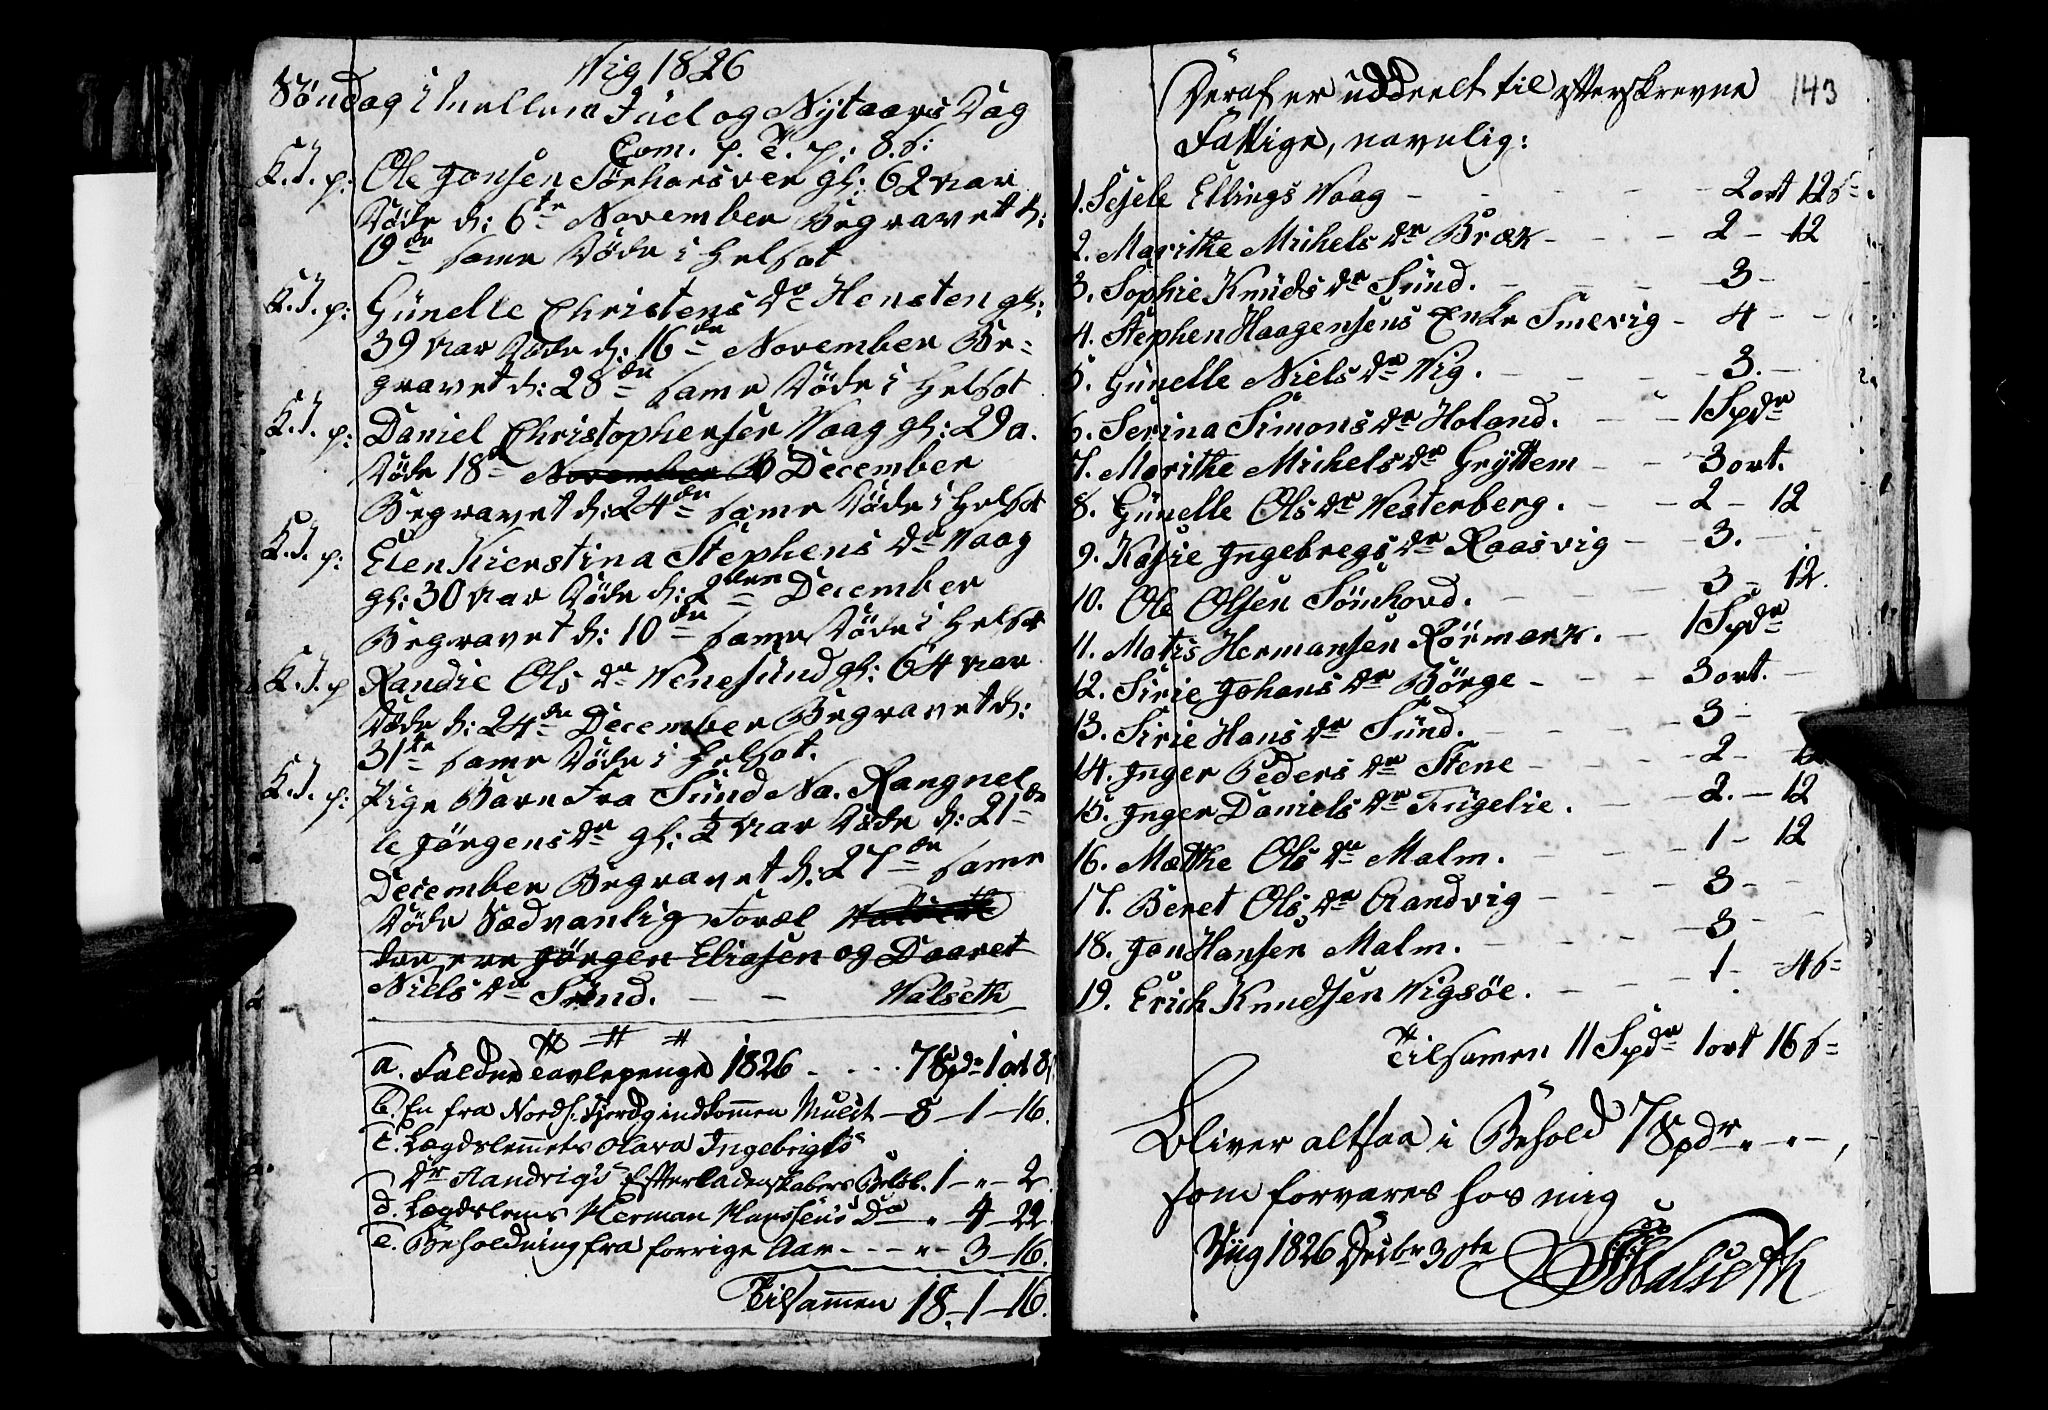 Vig 1826
Søndag i mellem Juel og Nytaars Dag
Com. p. T. p: 8. ß:
K. J. p: Ole Jonsen Sørhorsver gl: 62 Aar
Døde d: 6te November Begravet d:
19de same Døde i Helsot
K. J. p: Günelle Christens Dr Hensten gl:
39 Aar Døde d: 16de November Be=
gravet d: 28de same Døde i Helsot
K. J. p: Daniel Christophersen Vaag gl: 29 a.
Døde 18d November B December
Begravet d: 24de same Døde i Helsot
K. J. p: Elen Kierstina Stephens Dr Vaag
gl: 30 Aar Døde d: 2den December
Begravet d: 10de same Døde i Helsot
K. J. p Randie Ols Dr Venesünd gl: 64 Aar
Døde d: 24de December Begravet d:
31te same Døde i Helsot.
K. J. p: Pige Barn Fra Sünd Na. Rangnel
le Jörgens Dr gl: ½ Aar Døde d: 21de
December Begravet d: 27de same
Døde Sædvanlig Foræl Valseth
dre ere Jörgen Eliasen og Daaret
Niels Dr Sünd. — — Valseth
a. Falden Tavlepenge 1826 . . . . 7 Spd 1 ort 8ß
b. En fra Nordf. Fjerdg indkommen Mulct — 8 — 1 — 16.
c. Lægdslemmets Olava Ingebrigts
Dr Aandvigs Efterladenskabers Beløb. 1 — " — 2.
d. Lægdslems Herman Hanssens Do — " — 4 — 22.
e. Beholdning fra forrige Aar - - - " — 3 — 16.
Tilsammen 18 — 1 — 16.
Deraf er uddeelt til efterskrevne 143
Fattige, navnlig:
1. Sejele Ellings Vaag - - - - - 2 ort 12 ß
2. Marithe Michels Dr Bræk - - - 2 - 12
3. Sophie Knüds Dr Sünd. - - - 3 -
4. Stephen Haagensens Enke Smevig - 4 - -
5. Günelle Niels Dr Vig. - - - 3. -
6. Serina Simons Dr Holand. - - 1 Spdr
7. Marithe Michels Dr Gryttem - - 3 ort.
8. Günelle Ols Dr Vesterberg. - - 2 - 12
9. Kasie Ingebregs Dr Raasvig - - 3. - .
10. Ole Olsen Sömhovd. - - - 3 - 12.
11. Matis Hermansen Rörmark. - 1 Spdr
12. Sirie Johans Dr Börge - - - 3 ort. -
13. Sirie Hans Dr Sünd. - - - 3 - -
14. Inger Peders Dr Stene - - - 2 -
15. Inger Daniels Dr Fügelie. - - 2. - 12
16. Mathe Ols Dr Malm. - - - 1 - 12
17. Beret Ols Dr Aandvig - - - 3 - -
18. Jon Hansen Malm. - - - 3 - -
19. Erich Knudsen Vigsøe. - - - 1 - 4 ß
Tilsamen 11 Spdr 1 ort 16 ß
Bliver altsaa i Behold 7 Spdr " — " — ,
som forvares hos mig
Viig 1826 Decbr 30te Walseth